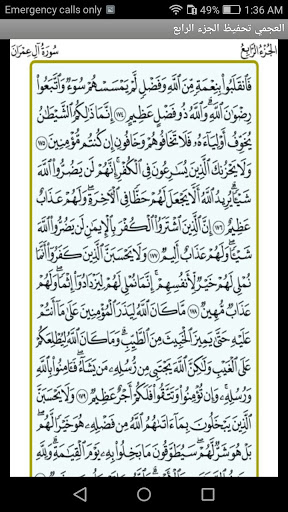 Emergency calls only 1:36 AM
العجمي تحفيظ الجزء الرابع
الجزء الرابع سورة آل عمران
فَٱنقَلَبُوا۟ بِنِعْمَةٍ مِّنَ ٱللَّهِ وَفَضْلٍ لَّمْ يَمْسَسْهُمْ سُوٓءٌ وَٱتَّبَعُوا۟
رِضْوَٰنَ ٱللَّهِ وَٱللَّهُ ذُو فَضْلٍ عَظِيمٍ ١٧٤ إِنَّمَا ذَٰلِكُمُ ٱلشَّيْطَٰنُ
يُخَوِّفُ أَوْلِيَآءَهُۥ فَلَا تَخَافُوهُمْ وَخَافُونِ إِن كُنتُم مُّؤْمِنِينَ ١٧٥
وَلَا يَحْزُنكَ ٱلَّذِينَ يُسَٰرِعُونَ فِى ٱلْكُفْرِ إِنَّهُمْ لَن يَضُرُّوا۟ ٱللَّهَ
شَيْـًٔا يُرِيدُ ٱللَّهُ أَلَّا يَجْعَلَ لَهُمْ حَظًّا فِى ٱلْءَاخِرَةِ وَلَهُمْ عَذَابٌ
عَظِيمٌ ١٧٦ إِنَّ ٱلَّذِينَ ٱشْتَرَوُا۟ ٱلْكُفْرَ بِٱلْإِيمَٰنِ لَن يَضُرُّوا۟ ٱللَّهَ
شَيْـًٔا وَلَهُمْ عَذَابٌ أَلِيمٌ ١٧٧ وَلَا يَحْسَبَنَّ ٱلَّذِينَ كَفَرُوٓا۟ أَنَّمَا
نُمْلِى لَهُمْ خَيْرٌ لِّأَنفُسِهِمْ إِنَّمَا نُمْلِى لَهُمْ لِيَزْدَادُوٓا۟ إِثْمًا وَلَهُمْ
عَذَابٌ مُّهِينٌ ١٧٨ مَّا كَانَ ٱللَّهُ لِيَذَرَ ٱلْمُؤْمِنِينَ عَلَىٰ مَآ أَنتُمْ
عَلَيْهِ حَتَّىٰ يَمِيزَ ٱلْخَبِيثَ مِنَ ٱلطَّيِّبِ وَمَا كَانَ ٱللَّهُ لِيُطْلِعَكُمْ
عَلَى ٱلْغَيْبِ وَلَٰكِنَّ ٱللَّهَ يَجْتَبِى مِن رُّسُلِهِۦ مَن يَشَآءُ فَـَٔامِنُوا۟ بِٱللَّهِ
وَرُسُلِهِۦ وَإِن تُؤْمِنُوا۟ وَتَتَّقُوا۟ فَلَكُمْ أَجْرٌ عَظِيمٌ ١٧٩ وَلَا يَحْسَبَنَّ
ٱلَّذِينَ يَبْخَلُونَ بِمَآ ءَاتَىٰهُمُ ٱللَّهُ مِن فَضْلِهِۦ هُوَ خَيْرًا لَّهُم
بَلْ هُوَ شَرٌّ لَّهُمْ سَيُطَوَّقُونَ مَا بَخِلُوا۟ بِهِۦ يَوْمَ ٱلْقِيَٰمَةِ وَلِلَّهِ